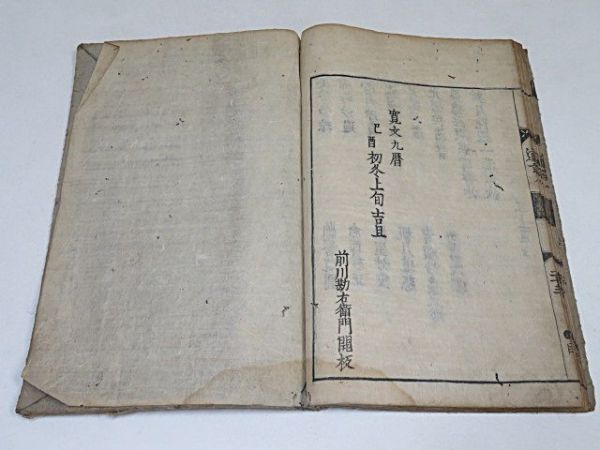 寛文九暦
己酉初冬上旬吉旦
前川勘右衛門開板